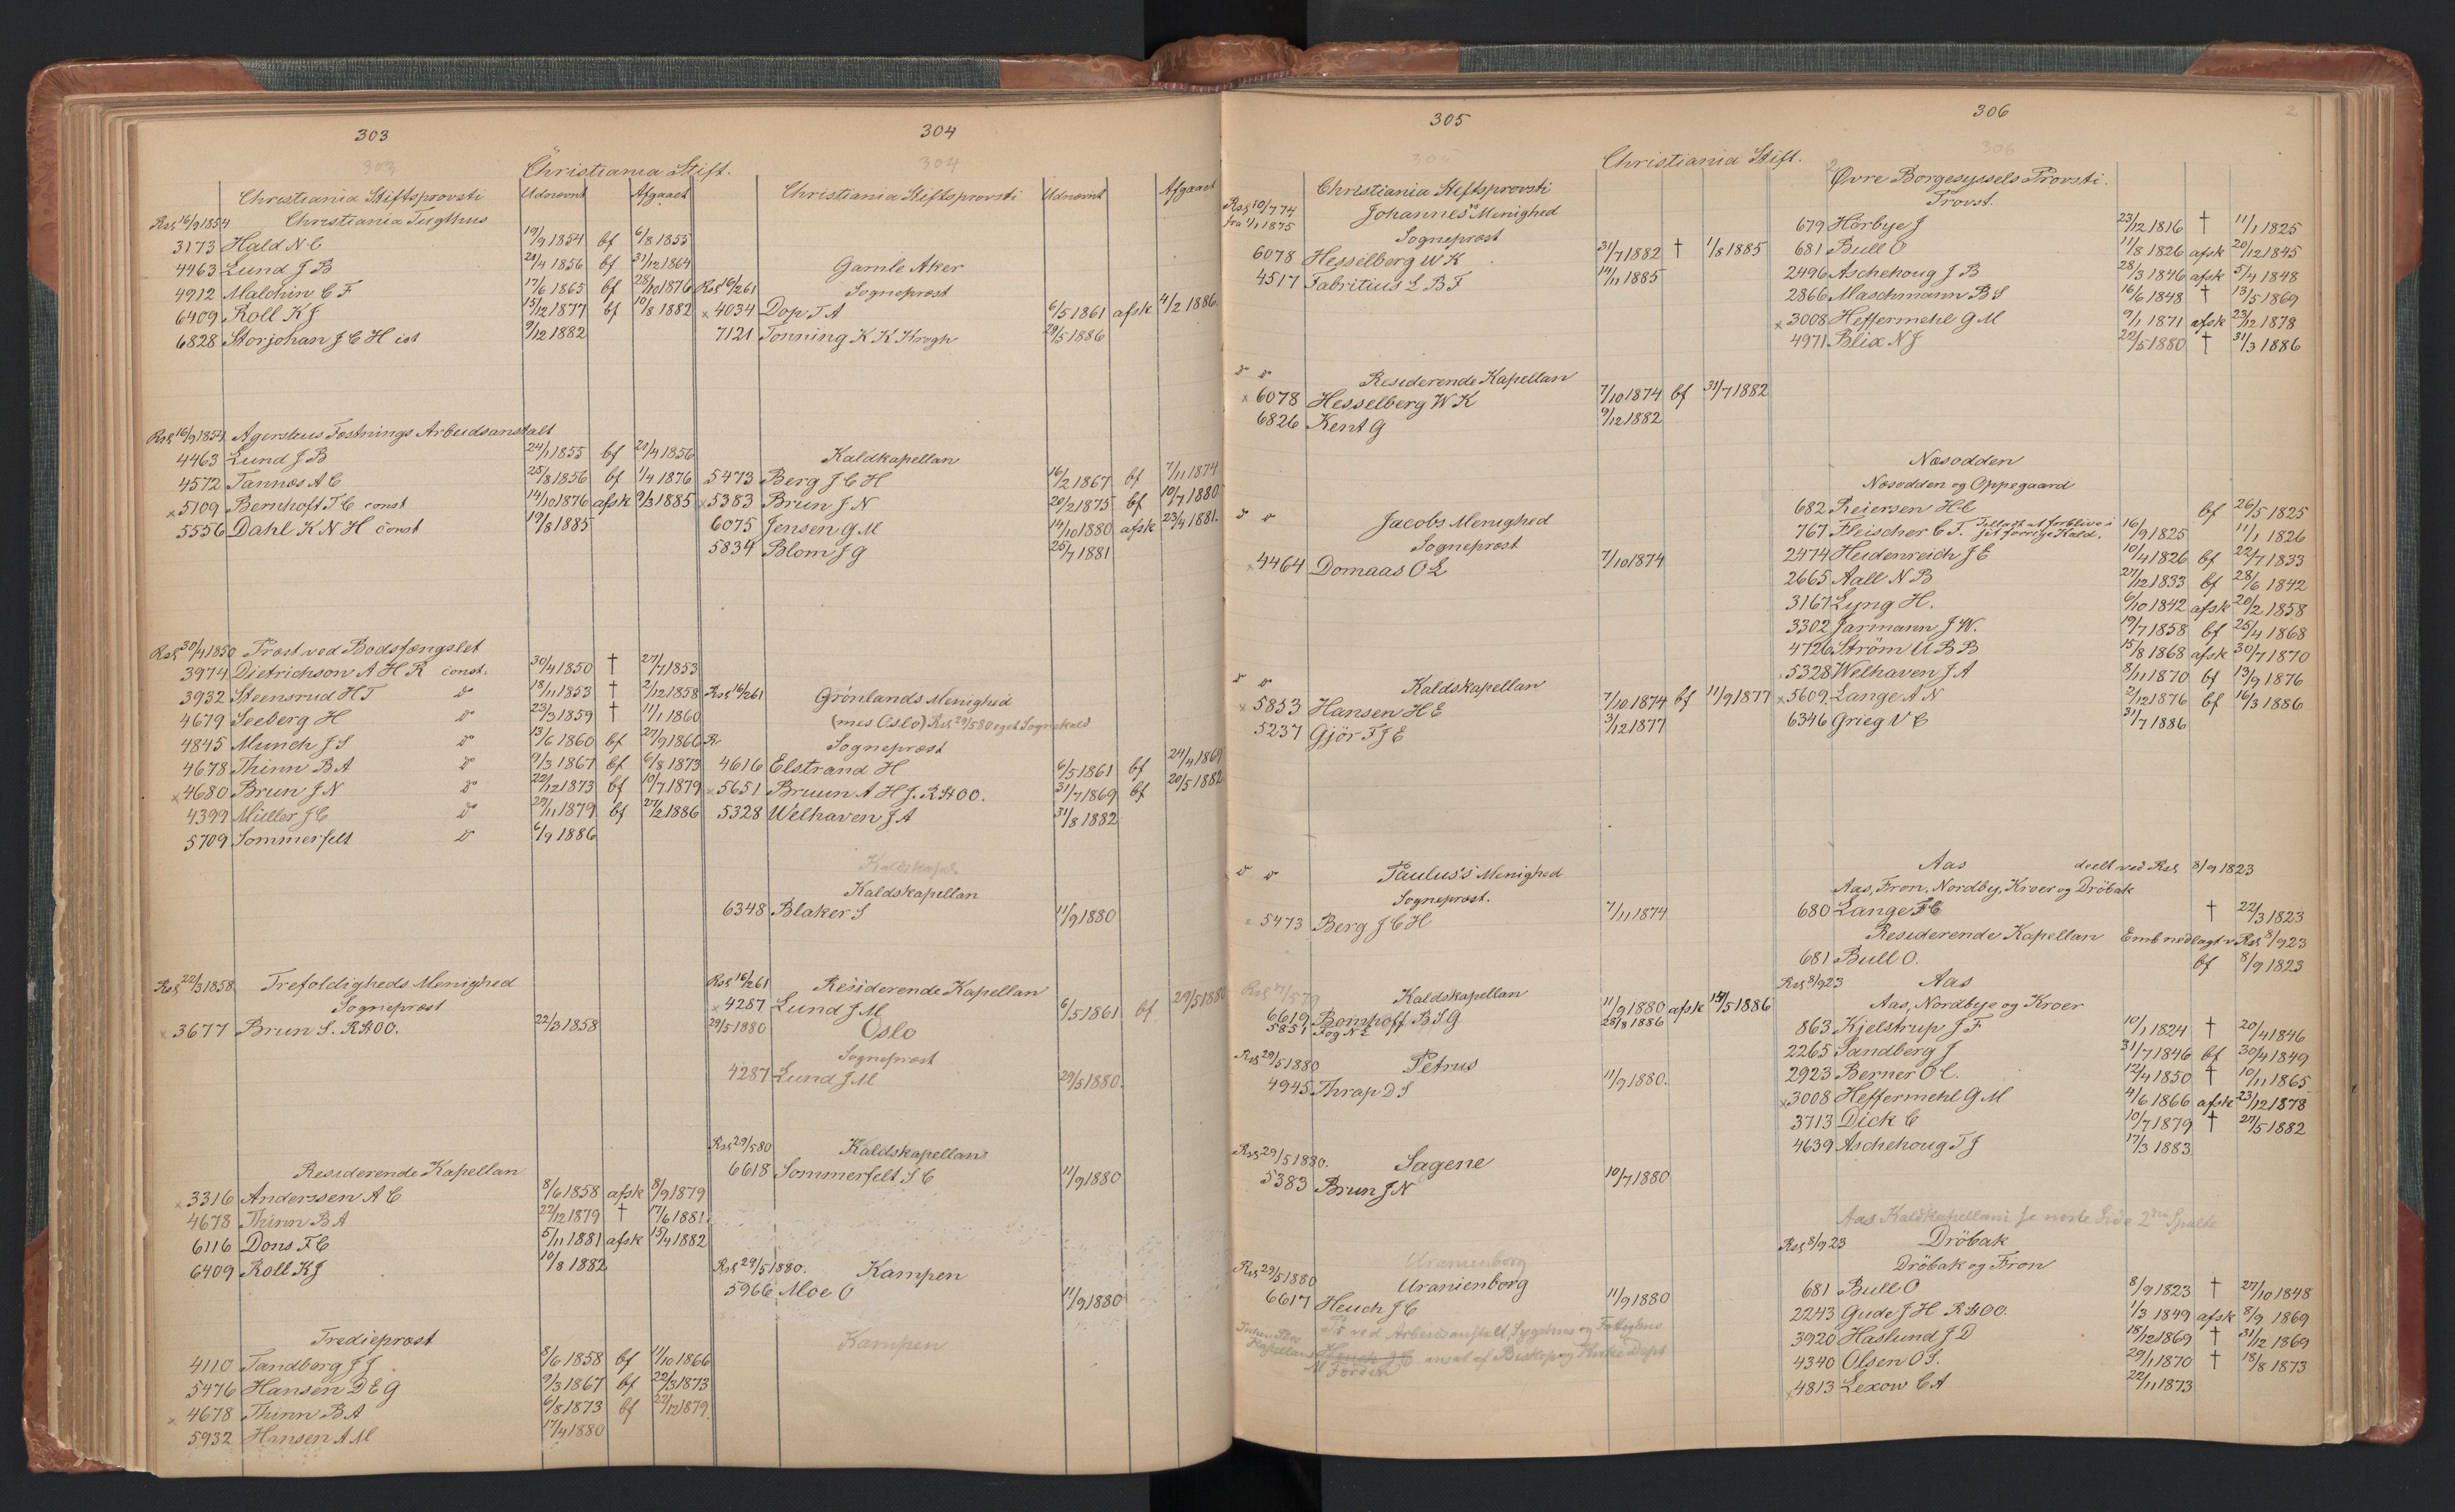 303
303
Christiania Stift.
Christiania Stiftsprovsti Udnevnt Afgaaet
Res 16/9 1854 Christiania Tugthus
3173 Hald N C 19/9 1854 bf 6/8 1855
4463 Lund J B 21/4 1856 bf 31/12 1864
4912 Malchin C F 17/6 1865 bf 28/10 1876
6409 Roll K J 15/12 1877 bf 10/8 1882
6828 Storjohan J C H 9/12 1882
Res 16/9 1854 Agershus Fæstnings Arbeidsanstalt
4463 Lund J B 24/1 1855 bf 21/4 1856
4572 Tannæs A C 25/8 1856 bf 1/4 1876
x 5109 Bernhoft T C const 14/10 1876 afsk 9/3 1885
5556 Dahl K N H const 19/8 1885
Res 30/4 1850 Præst ved Bodsfængslet
3974 Dietrichson A H R const. 30/4 1850 † 27/7 1853
3932 Steensrud H T 18/11 1853 † 2/12 1858
4679 Seeberg H 23/3 1859 † 11/1 1860
4845 Munch J S 13/6 1860 bf 27/9 1866
4678 Thinn B A 9/3 1867 bf 6/8 1873
x 4680 Brun J N 22/12 1873 bf 10/7 1879
4399 Müller J C 29/11 1879 bf 27/2 1886
5709 Sommerfelt 6/9 1886
Res 22/3 1858 Trefoldigheds Menighed
Sognepræst
x 3677 Brun S. RStOO. 22/3 1858
Residerende Kapellan
x 3316 Anderssen A C 8/6 1858 afsk 8/9 1879
4678 Thinn B A 22/12 1879 † 17/6 1881
6116 Dons F C 5/11 1881 afsk 15/4 1882
6409 Roll K J 10/8 1882
Tredieprest
4110 Tandberg J J. 8/6 1858 bf 11/10 1866
5476 Hansen D E G 9/3 1867 bf 22/3 1873
x 4678 Thinn B A 6/8 1873 bf 22/12 1879
5932 Hansen A M 17/4 1880
304
304
Christiania Stiftsprovsti Udnevnt Afgaaet
Gamle Aker
Res 16/2 61 Sognepræst
x 4034 Dop T A 6/5 1861 afsk 4/2 1886
7121 Tonning K K Krogh 29/5 1886
Kaldkapellan
5473 Berg J C H 16/2 1867 bf 7/11 1874
x 5383 Brun J N 20/2 1875 bf 10/7 1880
6075 Jensen G M 14/10 1880 afsk 23/4 1881.
5834 Blom J G 25/7 1881
Res 16/2 61 Grönlands Menighed
(mes Oslo) Res 29/5 80 eget Sognekald
Sognepræst
4616 Elstrand H 6/5 1861 bf 24/4 1869
x 5651 Bruun A H J. RStOO. 31/7 1869 bf 20/5 1882
5328 Welhaven J A 31/8 1882
Kaldskapel
Kaldskapellan
6348 Blaker S 11/9 1880
Res 16/2 61 Residerende Kapellan
x 4287 Lund J M 6/5 1861 bf 29/5 1880
29/5 1880 Oslo
Sognepræst
4287 Lund J M 29/5 1880.
Res 29/5 80 Kaldskapellan
6618 Sommerfelt S C 11/9 1880
Res 29/5 1880. Kampen
5966 Moe O 11/9 1880
Kampen
305
305
Christiania Stift.
Christiania Stiftsprovsti
Res 10/7 74 Johannes's Menighed
fra 1/1 1875
Sognepræst
6078 Hesselberg W K 31/7 1882 † 1/8 1885
4517 Fabritius L B F 14/11 1885
Residerende Kapellan
x 6078 Hesselberg W K 7/10 1874 bf 31/7 1882
6826 Kent G 9/12 1882
Jacobs Menighed
Sognepræst
x 4464 Domaas O L 7/10 1874
Kaldskapellan
x 5853 Hansen H E 7/10 1874 bf 11/9 1877
5237 Gjör F J E 3/12 1877
Paulus's Menighed
Sognepræst.
x 5473 Berg J C H 7/11 1874
Kaldskapellan
6619 Bomhoff B S G 11/9 1880 afsk 15/5 1886
5851 Fog N L 28/8 1886
Res 29/5 1880 Petrus
4945 Thrap D S 11/9 1880.
Res 29/5 1880. Sagene
5383 Brun J N 10/7 1880
Uranienborg
Res 29/5 1880 Uranienborg
6617 Heuch J C 11/9 1880
Pr ved Arbeidsanstalt, Sygehus og Fattighus
Kapellan Heuch J C ansat af Biskop og Kirke Dept
306
2
306
Øvre Borgesyssels Provsti.
Provst.
679 Hörbye J 23/12 1816 † 11/1 1825
681 Bull O 11/8 1826 afsk 20/12 1845
2496 Aschehoug J B 28/3 1846 afsk 5/4 1848
2866 Maschmann B S 16/6 1848 † 13/5 1869
x 3008 Heffermehl G M 9/1 1871 afsk 23/12 1878
4971 Blix N J 22/5 1880 † 31/3 1886
Næsodden
Næsodden og Oppegaard
682 Reiersen H C bf 26/5 1825
767 Fleischer C T. Tilladt at forblive i sit forrige Kald. 16/9 1825 11/1 1826
2474 Heidenreich J E 10/4 1826 bf 22/7 1833
2665 Aall N B 27/12 1833 bf 28/6 1842
3167 Lyng H. 6/10 1842 afsk 20/2 1858
3302 Jarmann J W. 19/7 1858 bf 25/4 1868
4726 Ström U B B 15/8 1868 afsk 30/7 1870
x 5328 Welhaven J A 8/11 1870 bf 13/9 1876
x 5609 Lange A N 2/12 1876 bf 16/3 1886
6346 Grieg V C 31/7 1886
Aas deelt ved Res 8/9 1823
Aas, Fron, Nordby, Kroer og Dröbak
680 Lange F C † 22/3 1823
Residerende Kapellan Emb nedlagt v Res 8/9 23
681 Bull O. bf 8/9 1823
Res 8/9 23 Aas
Aas, Nordbye og Kroer
863 Kjelstrup J F 10/1 1824 † 20/4 1846
2265 Sandberg J 31/7 1846 bf 30/4 1849
2923 Berner O C. 12/4 1850 † 10/11 1865
x 3008 Heffermehl G M 4/6 1866 afsk 23/12 1878
3713 Dick C 10/7 1879 † 27/5 1882
4639 Aschehoug T J 17/3 1883
Aas Kaldskapellani se næste Side 2den Spalte
Res 8/9 23 Dröbak
Dröbak og Fron
681 Bull O 8/9 1823 † 27/10 1848
2243 Gude J H RStOO. 1/3 1849 afsk 8/9 1869
3920 Haslund J D 18/12 1869 † 31/12 1869
4340 Olsen O S. 29/1 1870 † 18/8 1873
x 4813 Lexow C A 22/11 1873